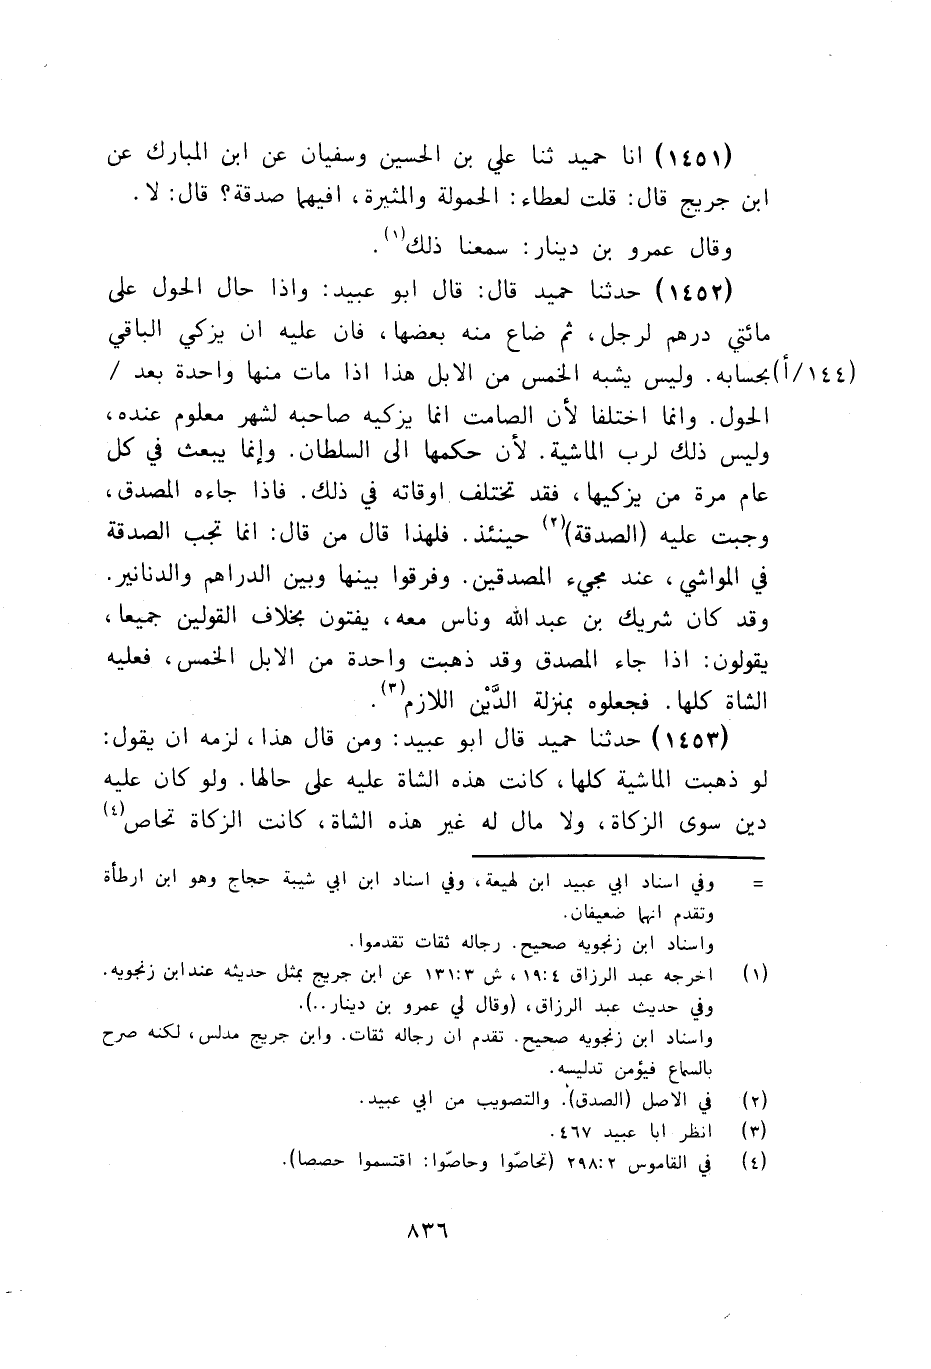 (١٤٥١) انا حميد ثنا علي بن الحسين وسفيان عن ابن المبارك عن
ابن جريج قال: قلت لعطاء: الحمولة والمثيرة، افيهما صدقة؟ قال: لا.
وقال عمرو بن دينار: سمعنا ذلك(١).
(١٤٥٢) حدثنا حميد قال: قال ابو عبيد: واذا حال الحول على
مائتي درهم لرجل، ثم ضاع منه بعضها، فان عليه ان يزكي الباقي
(١٤٤/أ) بحسابه. وليس يشبه الخمس من الابل هذا اذا مات منها واحدة بعد /
الحول. وانما اختلفا لأن الصامت انما يزكيه صاحبه لشهر معلوم عنده،
وليس ذلك لرب الماشية. لأن حكمها الى السلطان. وإنما يبعث في كل
عام مرة من يزكيها، فقد تختلف اوقاته في ذلك. فاذا جاءه المصدق،
وجبت عليه (الصدقة)(٢) حينئذ. فلهذا قال من قال: انما تجب الصدقة
في المواشي، عند مجيء المصدقين. وفرقوا بينها وبين الدراهم والدنانير.
وقد كان شريك بن عبدالله وناس معه، يفتون بخلاف القولين جميعا،
يقولون: اذا جاء المصدق وقد ذهبت واحدة من الابل الخمس، فعليه
الشاة كلها. فجعلوه بمنزلة الدَّيْن اللازم(٣).
(١٤٥٣) حدثنا حميد قال ابو عبيد: ومن قال هذا، لزمه ان يقول:
لو ذهبت الماشية كلها، كانت هذه الشاة عليه على حالها. ولو كان عليه
دين سوى الزكاة، ولا مال له غير هذه الشاة، كانت الزكاة تحاص(٤)
= وفي اسناد ابي عبيد ابن لهيعة، وفي اسناد ابن ابي شيبة حجاج وهو ابن ارطأة
وتقدم انهما ضعيفان.
واسناد ابن زنجويه صحيح. رجاله ثقات تقدموا.
(١) اخرجه عبد الرزاق ٤:‏١٩، ش ٣:‏١٣١ عن ابن جريج بمثل حديثه عند ابن زنجويه.
وفي حديث عبد الرزاق، (وقال لي عمرو بن دينار..).
واسناد ابن زنجويه صحيح. تقدم ان رجاله ثقات. وابن جريج مدلس، لكنه صرح
بالسماع فيؤمن تدليسه.
(٢) في الاصل (الصدق). والتصويب من ابي عبيد.
(٣) انظر ابا عبيد ٤٦٧.
(٤) في القاموس ٢:‏٢٩٨ (تحاصّوا وحاصّوا: اقتسموا حصصا).
٨٣٦